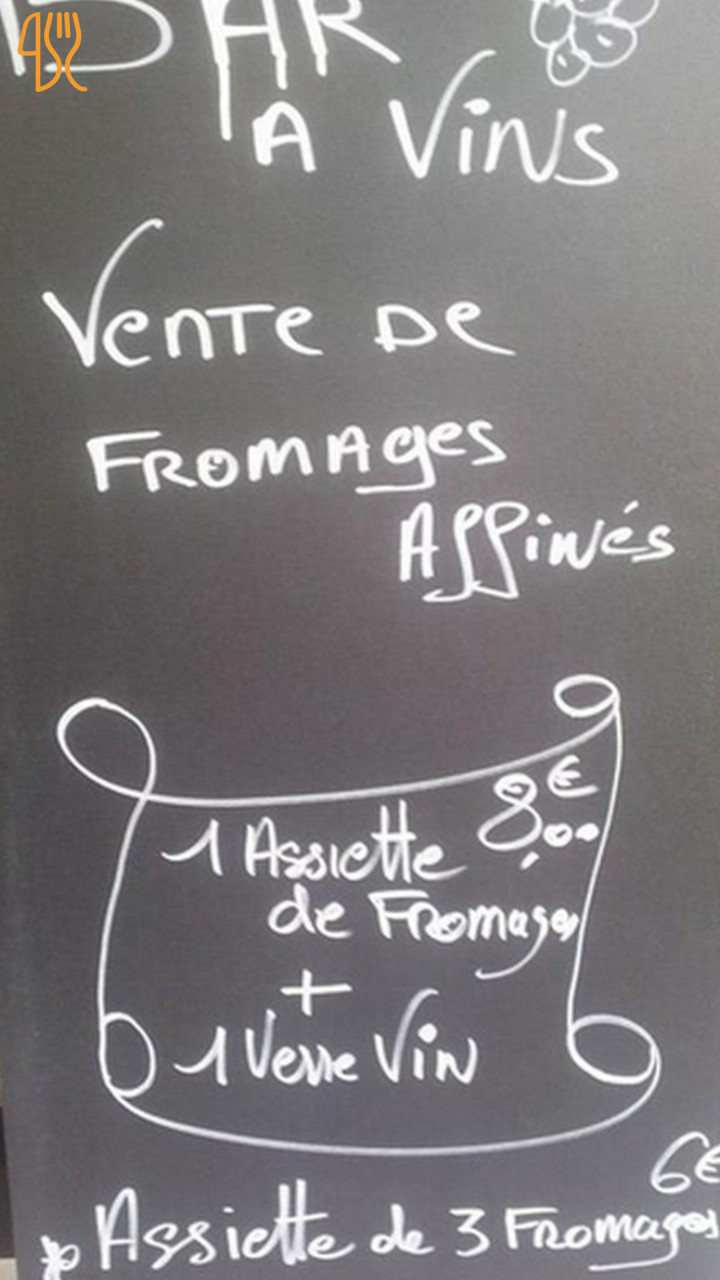 BAR
A Vins
Vente De
Fromages
Affinés
8,00 €
1 Assiette
de Fromages
+
1 Verre Vin
6€
* Assiette de 3 Fromages